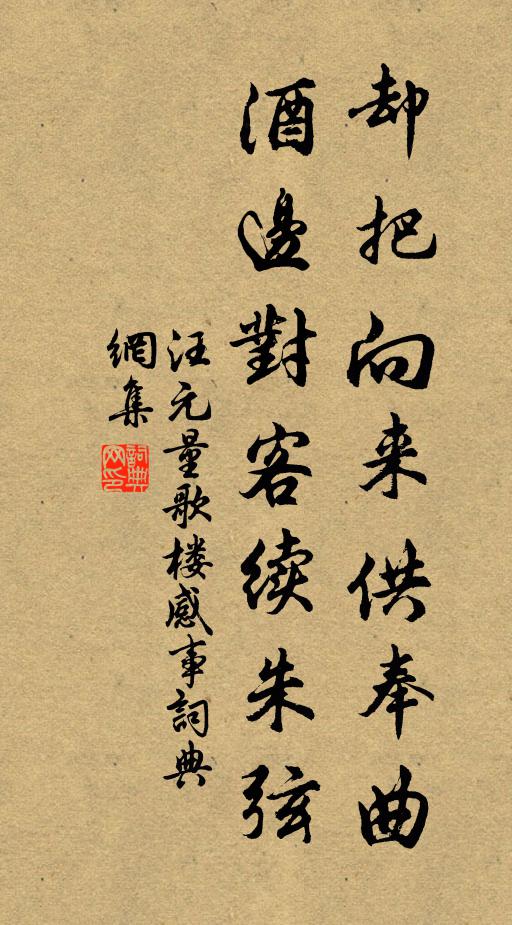 却把向来供奉曲
酒邊對客续朱弦
汪元量歌楼感事詞典
網集
詞典
网印